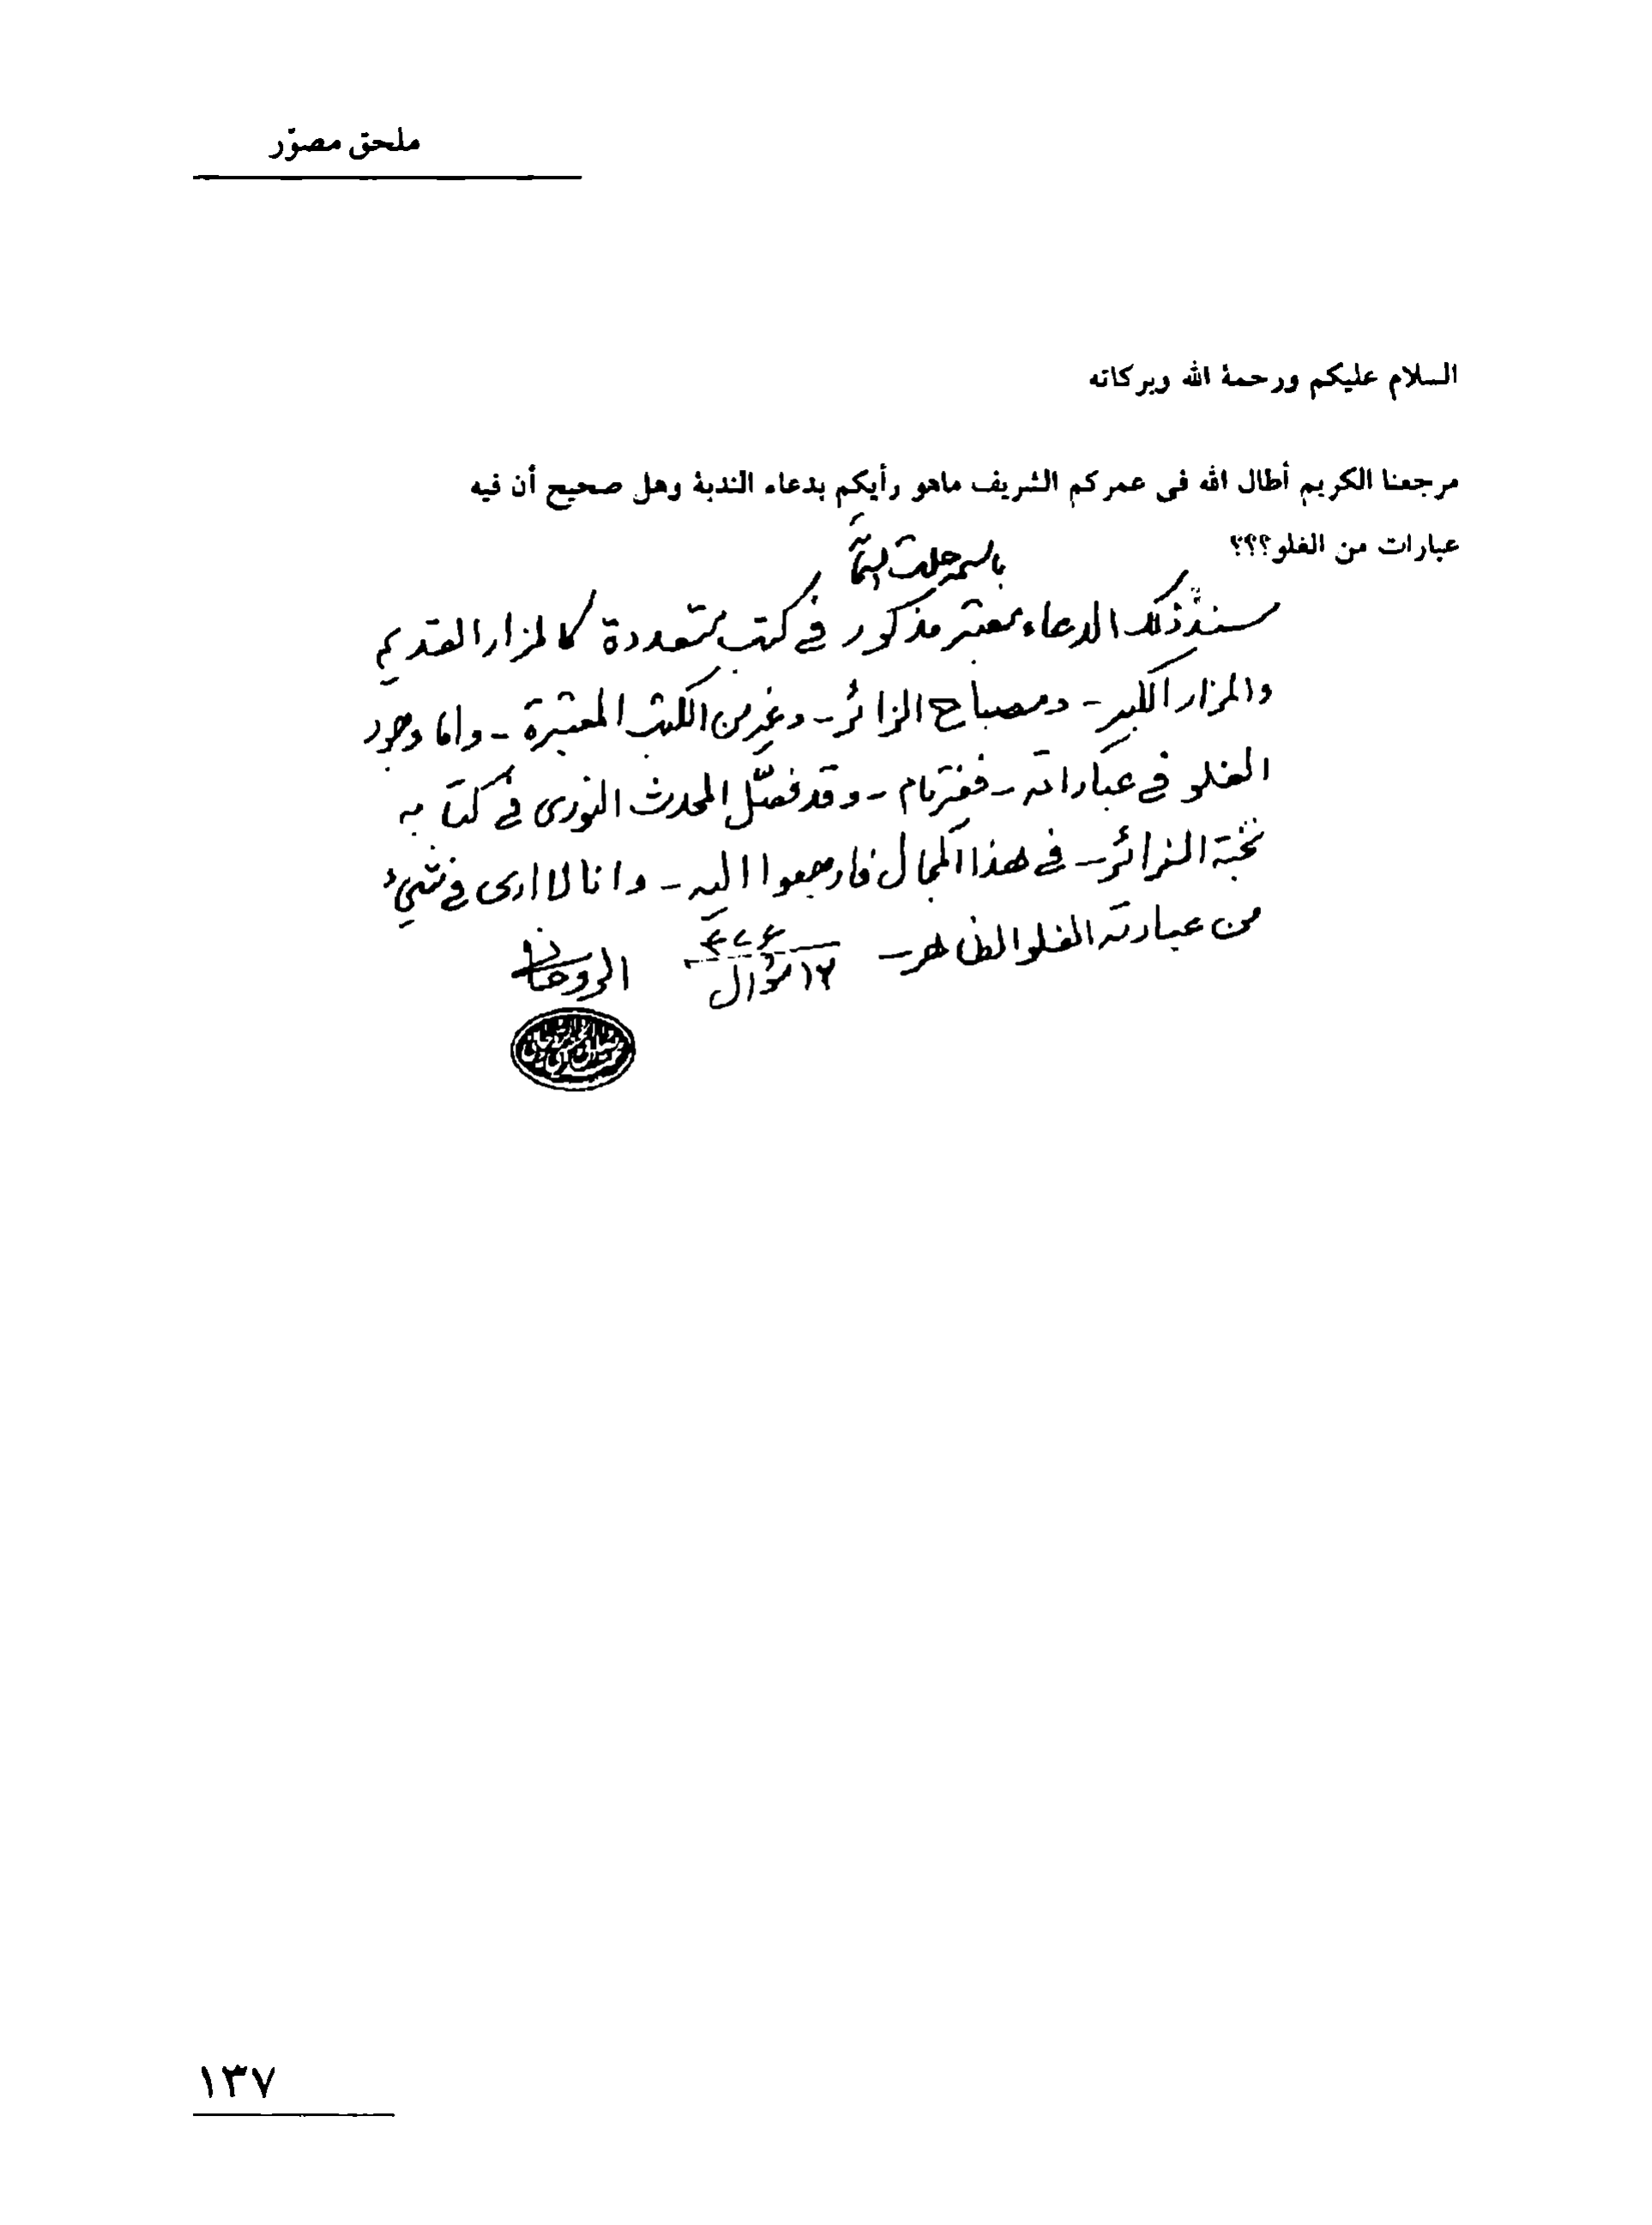 ملحق مصوّر
السلام عليكم ورحمة الله وبركاته
مرجعنا الكريم أطال الله فى عمركم الشريف ماهو رأيكم بدعاء الندبة وهل صحيح أن فيه
عبارات من الغلو؟؟؟
باسمه جلت اسمائه
سند ذلك الدعاء معتبر مذكور في كتب متعددة كالمزار القديم
والمزار الكبير - ومصباح الزائر - وغير من الكتب المعتبرة - واما وجود
الغلو في عباراته - فغير تام - وقد فصّل المحدث النورى في كتابه
الزائر - في هذا المجال فارجعوا اليه - وانا لا ارى في شيء
من عبارته الغلو الظاهر -
١٢ شوال
الروحاني
١٣٧